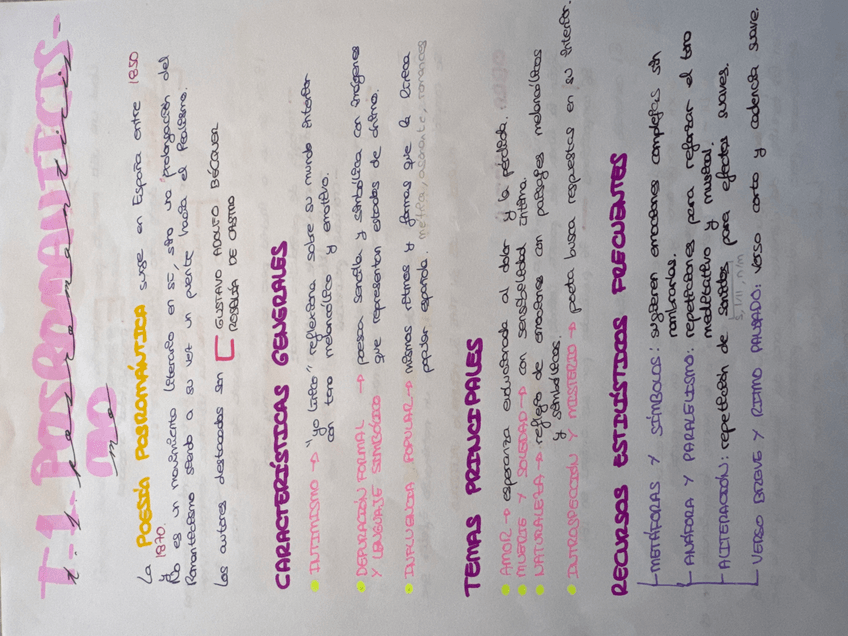 T-1. POSROMANTICIS-
MO
t. 1 posromanticis
mo
La POESÍA POSROMÁNTICA surge en España entre 1850
y 1870.
No es un movimiento literario en sí, sino una prolongación del
Romanticismo siendo a su vez un puente hasta el Realismo.
Los autores destacados son GUSTAVO ADOLFO BÉCQUER
ROSALÍA DE CASTRO
CARACTERÍSTICAS GENERALES
INTIMISMO → "yo lírico" reflexiona sobre su mundo interior
con tono melancólico y emotivo.
DEPURACIÓN FORMAL → poesía sencilla y simbólica con imágenes
Y LENGUAJE SIMBÓLICO que representan estados de ánimo.
INFLUENCIA POPULAR → mismos ritmos y formas que la lírica
popular española. métrica, asonante, romances
TEMAS PRINCIPALES
AMOR → esperanza evolucionada al dolor y la pérdida.
MUERTE Y SOLEDAD → con sensibilidad íntima.
NATURALEZA → reflejo de emociones con paisajes melancólicos
y simbólicos.
INTROSPECCIÓN Y MISTERIO → poeta busca respuestas en su interior.
RECURSOS ESTILÍSTICOS FRECUENTES
METÁFORAS Y SÍMBOLOS: sugieren emociones complejas sin
nombrarlas.
ANÁFORA Y PARALELISMO: repeticiones para reforzar el tono
meditativo y musical.
ALITERACIÓN: repetición de sonidos para efectos suaves.
VERSO BREVE Y RITMO PAUSADO: verso corto y cadencia suave.